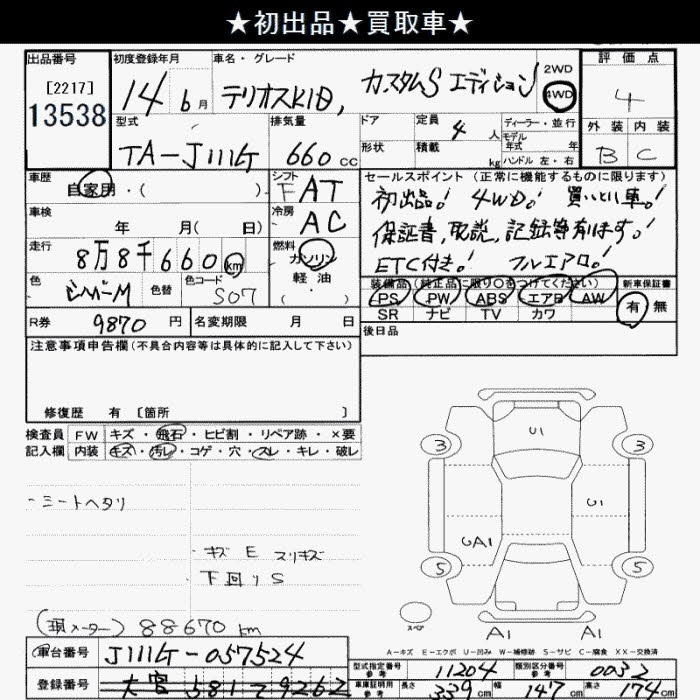 ★初出品★買取車★
出品番号 初度登録年月 車名・グレード 評価点
[2217] 13538 14 6月 テリオスKID, カスタムS エディション 2WD 4WD 4
型式 排気量 ドア 定員 4人 ディーラー・並行 外装 内装
TA-J111G 660cc 形状 積載 kg モデル年式 年 ハンドル 左・右 B C
車歴 自家用・( ) シフト F AT セールスポイント (正常に機能するものに限ります)
車検 年 月( 日) 冷房 AC 初出品! 4WD! 買いとり車!
走行 8万8千660km 燃料 ガソリン 軽油 ・( ) 保証書,取説,記録等有ります!
色 シルバーM 色替 色コード S07 ETC付き! フルエアロ!
装備品(純正品に限り○をつけてください) 新車保証書
PS PW ABS エアB AW 有 無
R券 9870円 名変期限 月 日 SR ナビ TV カワ
後日品
注意事項申告欄(不具合内容等は具体的に記入して下さい)
修復歴 有 [箇所 ]
検査員 FW キズ・飛石・ヒビ割・リペア跡・×要
記入欄 内装 キズ・汚レ・コゲ・穴・スレ・キレ・破レ
U1
3 3
U1
UA1
5 5
・シートヘタリ
・キズ E スリキズ
下回りS
(現メーター) 88670 km
スペア A1 A1
A-キズ E-エクボ U-凹み W-補修跡 S-サビ C-腐食 XX-交換済
車台番号 J111G-057524
型式指定番号 参考 11204 類別区分番号 参考 0032
登録番号 大宮 581 ワ 9262
車庫証明用 参考 長さ 339cm 幅 147cm 高さ 174cm